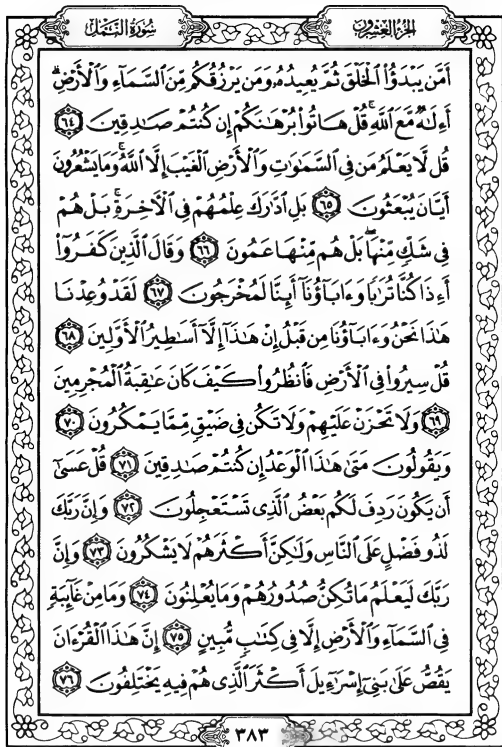 سُورَةُ النَّمْلِ
الجُزءُ العِشرُونَ
أَمَّن يَبْدَؤُا۟ ٱلْخَلْقَ ثُمَّ يُعِيدُهُۥ وَمَن يَرْزُقُكُم مِّنَ ٱلسَّمَآءِ وَٱلْأَرْضِ ۗ
أَءِلَٰهٌ مَّعَ ٱللَّهِ ۚ قُلْ هَاتُوا۟ بُرْهَٰنَكُمْ إِن كُنتُمْ صَٰدِقِينَ ٦٤
قُل لَّا يَعْلَمُ مَن فِى ٱلسَّمَٰوَٰتِ وَٱلْأَرْضِ ٱلْغَيْبَ إِلَّا ٱللَّهُ ۚ وَمَا يَشْعُرُونَ
أَيَّانَ يُبْعَثُونَ ٦٥ بَلِ ٱدَّٰرَكَ عِلْمُهُمْ فِى ٱلْءَاخِرَةِ ۚ بَلْ هُمْ
فِى شَكٍّ مِّنْهَا ۖ بَلْ هُم مِّنْهَا عَمُونَ ٦٦ وَقَالَ ٱلَّذِينَ كَفَرُوٓا۟
أَءِذَا كُنَّا تُرَٰبًا وَءَابَآؤُنَآ أَئِنَّا لَمُخْرَجُونَ ٦٧ لَقَدْ وُعِدْنَا
هَٰذَا نَحْنُ وَءَابَآؤُنَا مِن قَبْلُ إِنْ هَٰذَآ إِلَّآ أَسَٰطِيرُ ٱلْأَوَّلِينَ ٦٨
قُلْ سِيرُوا۟ فِى ٱلْأَرْضِ فَٱنظُرُوا۟ كَيْفَ كَانَ عَٰقِبَةُ ٱلْمُجْرِمِينَ
٦٩ وَلَا تَحْزَنْ عَلَيْهِمْ وَلَا تَكُن فِى ضَيْقٍ مِّمَّا يَمْكُرُونَ ٧٠
وَيَقُولُونَ مَتَىٰ هَٰذَا ٱلْوَعْدُ إِن كُنتُمْ صَٰدِقِينَ ٧١ قُلْ عَسَىٰٓ
أَن يَكُونَ رَدِفَ لَكُم بَعْضُ ٱلَّذِى تَسْتَعْجِلُونَ ٧٢ وَإِنَّ رَبَّكَ
لَذُو فَضْلٍ عَلَى ٱلنَّاسِ وَلَٰكِنَّ أَكْثَرَهُمْ لَا يَشْكُرُونَ ٧٣ وَإِنَّ
رَبَّكَ لَيَعْلَمُ مَا تُكِنُّ صُدُورُهُمْ وَمَا يُعْلِنُونَ ٧٤ وَمَا مِنْ غَآئِبَةٍ
فِى ٱلسَّمَآءِ وَٱلْأَرْضِ إِلَّا فِى كِتَٰبٍ مُّبِينٍ ٧٥ إِنَّ هَٰذَا ٱلْقُرْءَانَ
يَقُصُّ عَلَىٰ بَنِىٓ إِسْرَٰٓءِيلَ أَكْثَرَ ٱلَّذِى هُمْ فِيهِ يَخْتَلِفُونَ ٧٦
٣٨٣